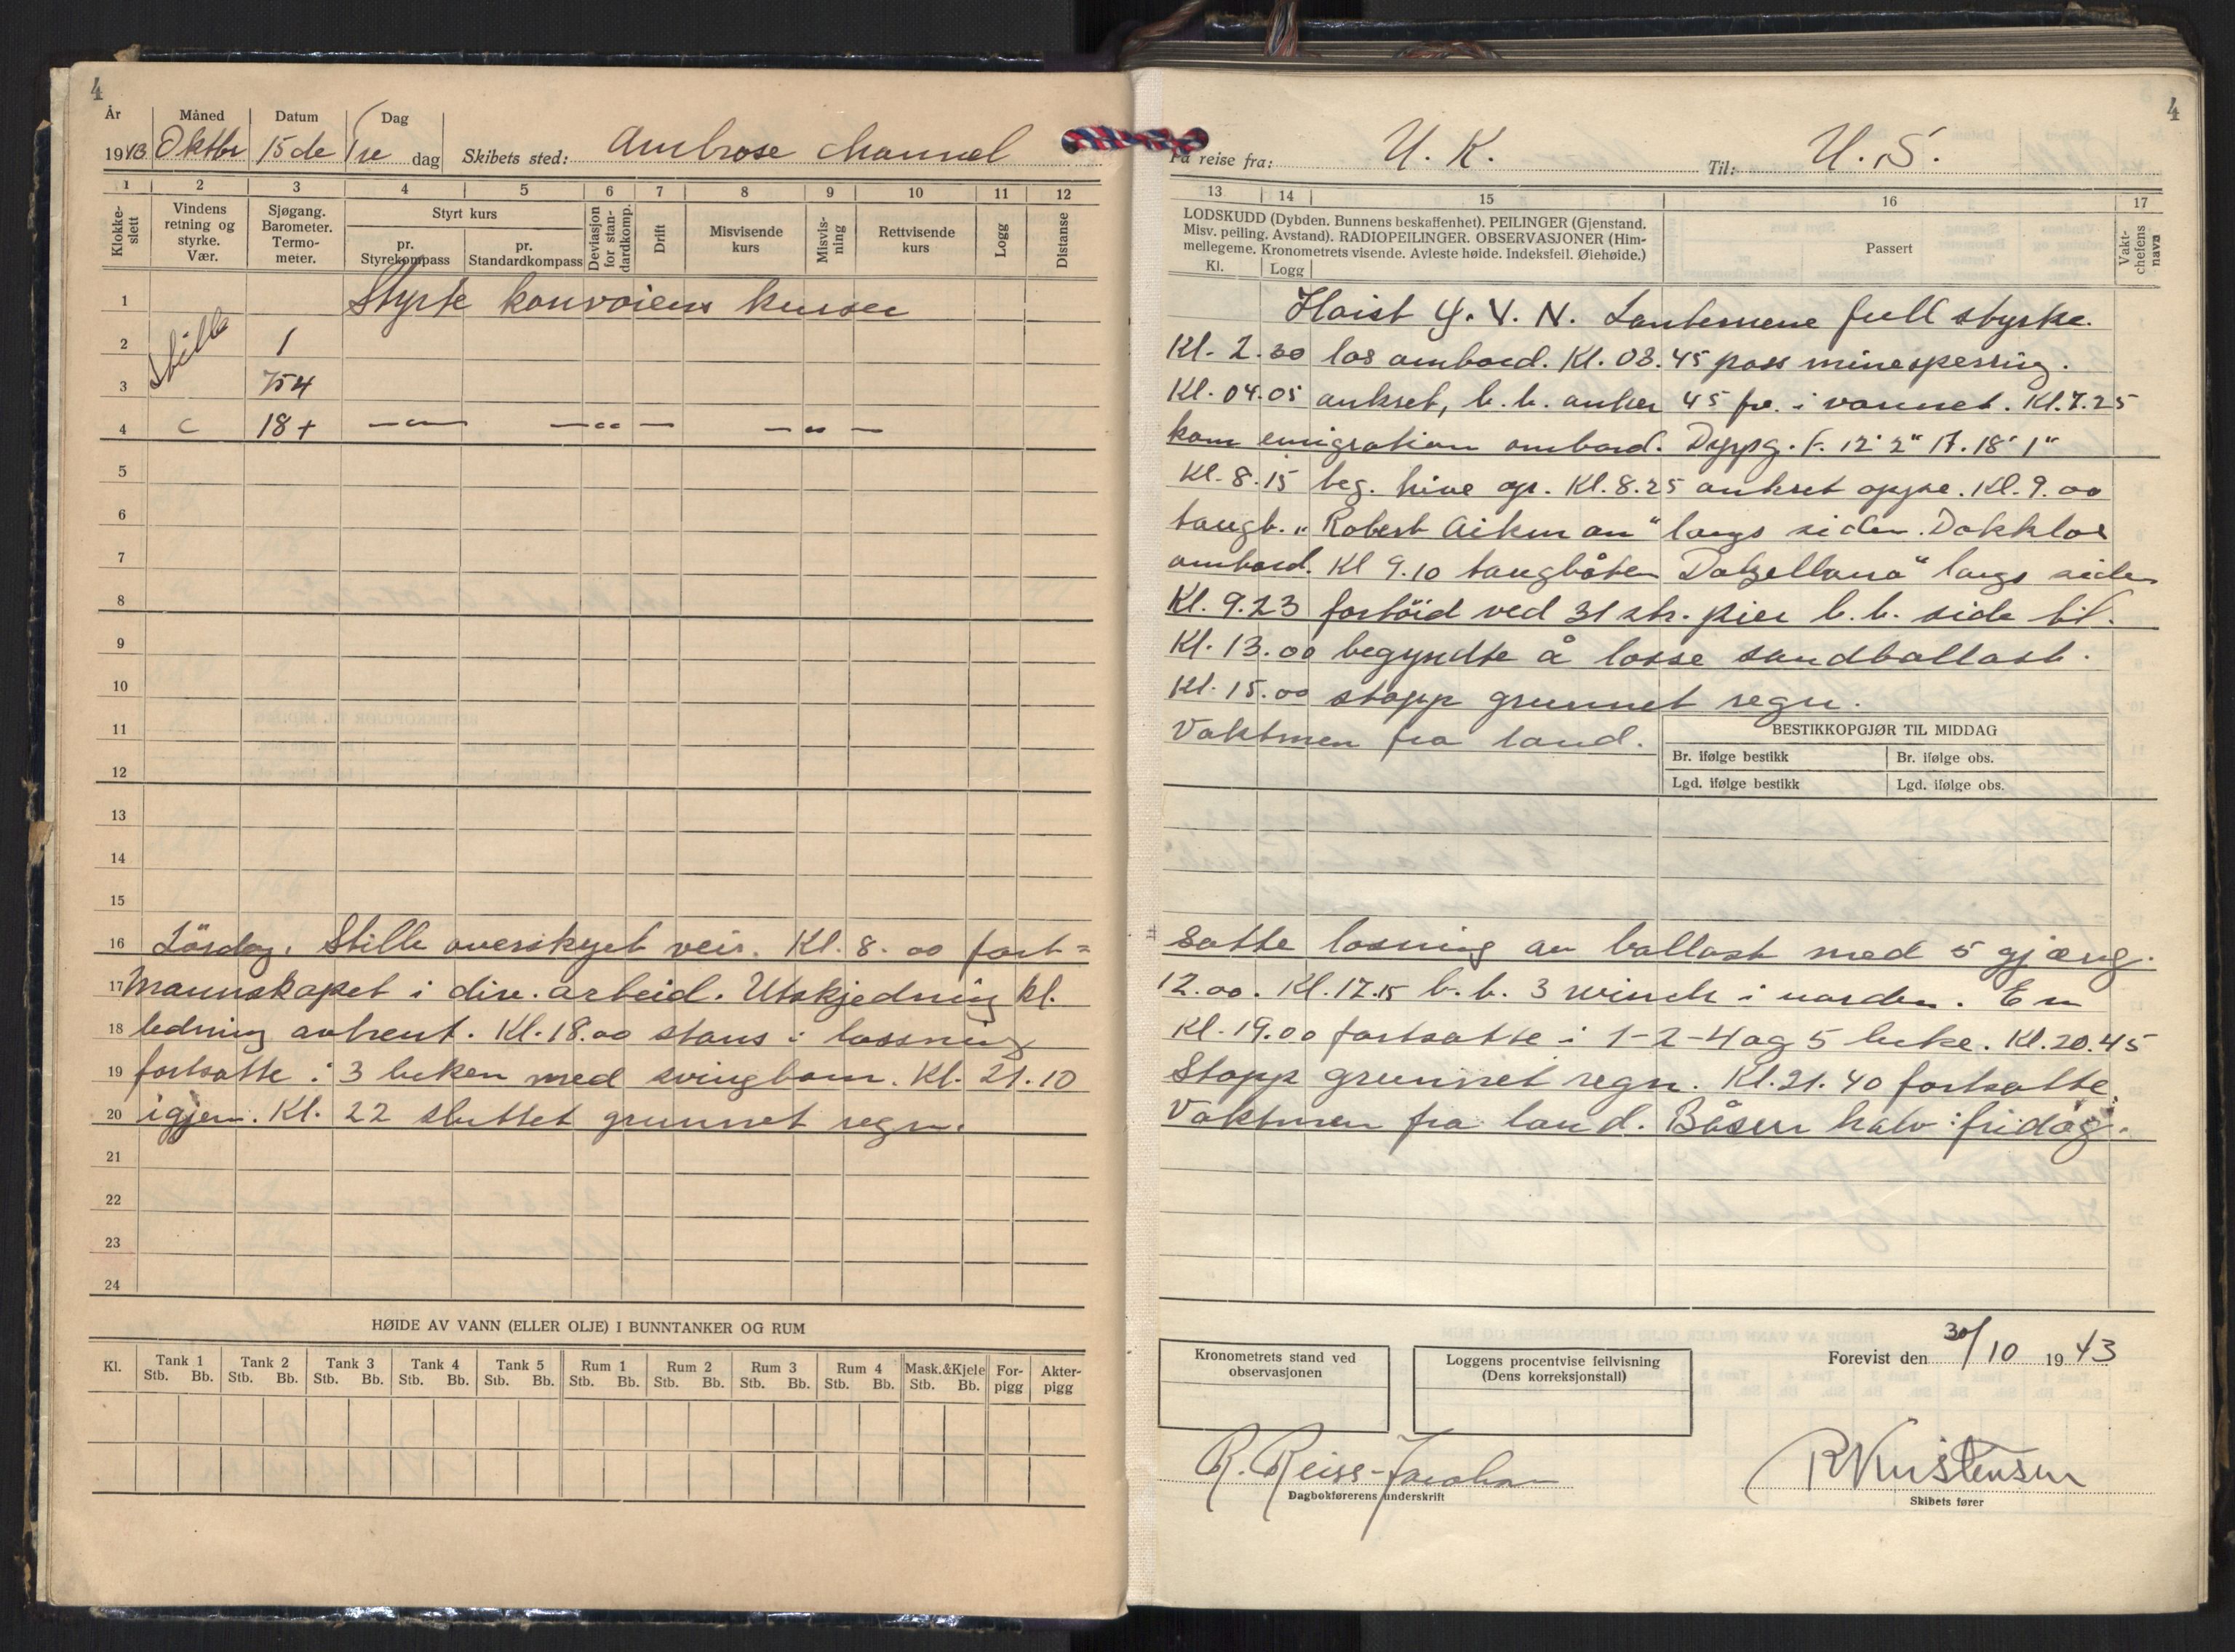 4
År Måned Datum Dag
1943 Oktbr 15de Fre dag Skibets sted: Ambrose Channel
1 2 3 4 5 6 7 8 9 10 11 12
Klokke-slett
Vindens retning og styrke. Vær.
Sjøgang. Barometer. Termo-meter.
Styrt kurs
pr. Styrekompass
pr. Standardkompass
Deviasjon for stan-dardkomp.
Drift
Misvisende kurs
Misvis-ning
Rettvisende kurs
Logg
Distanse
1 Styrte konvoiens kurser
2 Stille 1
3 754
4 C 18+ — „ — — „ — — „ —
5
6
7
8
9
10
11
12
13
14
15
16 Lördag. Stille overskyet veir. Kl. 8.00 fort=
17 Mannskapet i div. arbeid. Utskjedning kl.
18 ledning avbrent. Kl. 18.00 stans i lossning
19 fortsatte i 3 luken med svingbom. Kl. 21.10
20 igjen. Kl. 22 sluttet grunnet regn.
21
22
23
24
HØIDE AV VANN (ELLER OLJE) I BUNNTANKER OG RUM
Kl. Tank 1 Tank 2 Tank 3 Tank 4 Tank 5 Rum 1 Rum 2 Rum 3 Rum 4 Mask.&Kjele For-pigg Akter-pigg
Stb. Bb. Stb. Bb. Stb. Bb. Stb. Bb. Stb. Bb. Stb. Bb. Stb. Bb. Stb. Bb. Stb. Bb. Stb. Bb.
4
På reise fra: U. K. Til: U. S.
13 14 15 16 17
LODSKUDD (Dybden. Bunnens beskaffenhet). PEILINGER (Gjenstand.
Misv. peiling. Avstand). RADIOPEILINGER. OBSERVASJONER (Him-
mellegeme. Kronometrets visende. Avleste høide. Indeksfeil. Øiehøide.)
Kl. Logg
Passert
Vakt-chefens navn
Haist Y. V. N. Lanternene full styrke.
Kl. 2.30 los ombord. Kl. 03.45 pass minesperring.
Kl. 04.05 ankret, b.b. anker 45 fv. i vannet. Kl. 7.25
kom emigration ombord. Dypg. F. 12' 2" 17. 18' 1"
Kl. 8.15 beg. hive op. Kl. 8.25 ankret oppe. Kl. 9.00
taugb. „Robert Aikman" langs siden. Dokklos
ombord. Kl 9.10 taugbåten Dalzellana" langs siden
Kl. 9.23 fortöid ved 31 str. pier b.b. side til.
Kl. 13.00 begyndte å losse sandballast.
Kl. 15.00 stopp grunnet regn.
Vaktmen fra land.
BESTIKKOPGJØR TIL MIDDAG
Br. ifølge bestikk Br. ifølge obs.
Lgd. ifølge bestikk Lgd. ifølge obs.
= satte losning av ballast med 5 gjæng.
12.00. Kl. 17.15 b.b. 3 winch i uorden. En
Kl. 19.00 fortsatte i 1-2-4 og 5 luke. Kl. 20.45
Stopp grunnet regn. Kl. 21.40 fortsatte
Vaktmen fra land. Båsen halv fridag.
Kronometrets stand ved observasjonen
Loggens procentvise feilvisning
(Dens korreksjonstall)
Forevist den 30/10 1943
R. Reiss-Jacobsen
Dagbokførerens underskrift
R Kristensen
Skibets fører